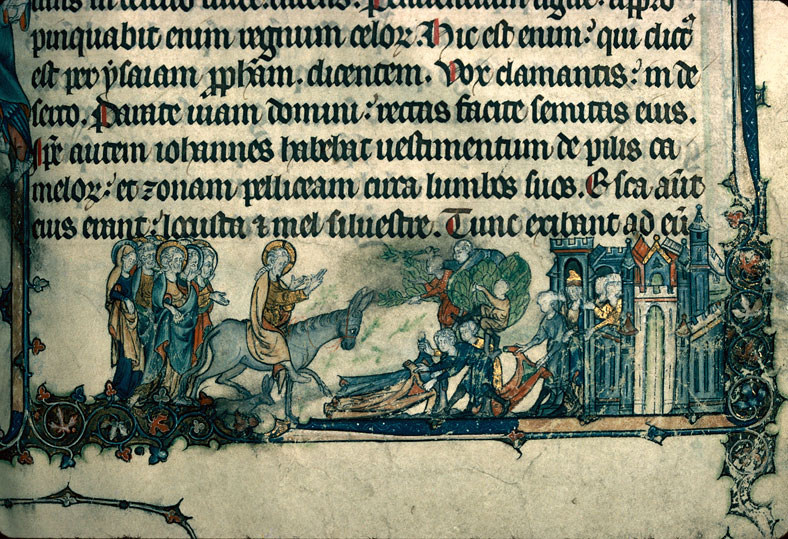 pinquabit enim regnum celoꝝ. Hic est enim: qui dictꝰ
est per ysaiam ꝓpħam. dicentem. Vox clamantis: in de
serto. Parate uiam domini: rectas facite semitas eius.
Ip̄e autem iohannes habebat uestimentum de pilis ca
meloꝝ: et zonam pelliceam circa lumbos suos. Esca aūt
eius erant: locusta ⁊ mel siluestre. Tunc exibant ad eū